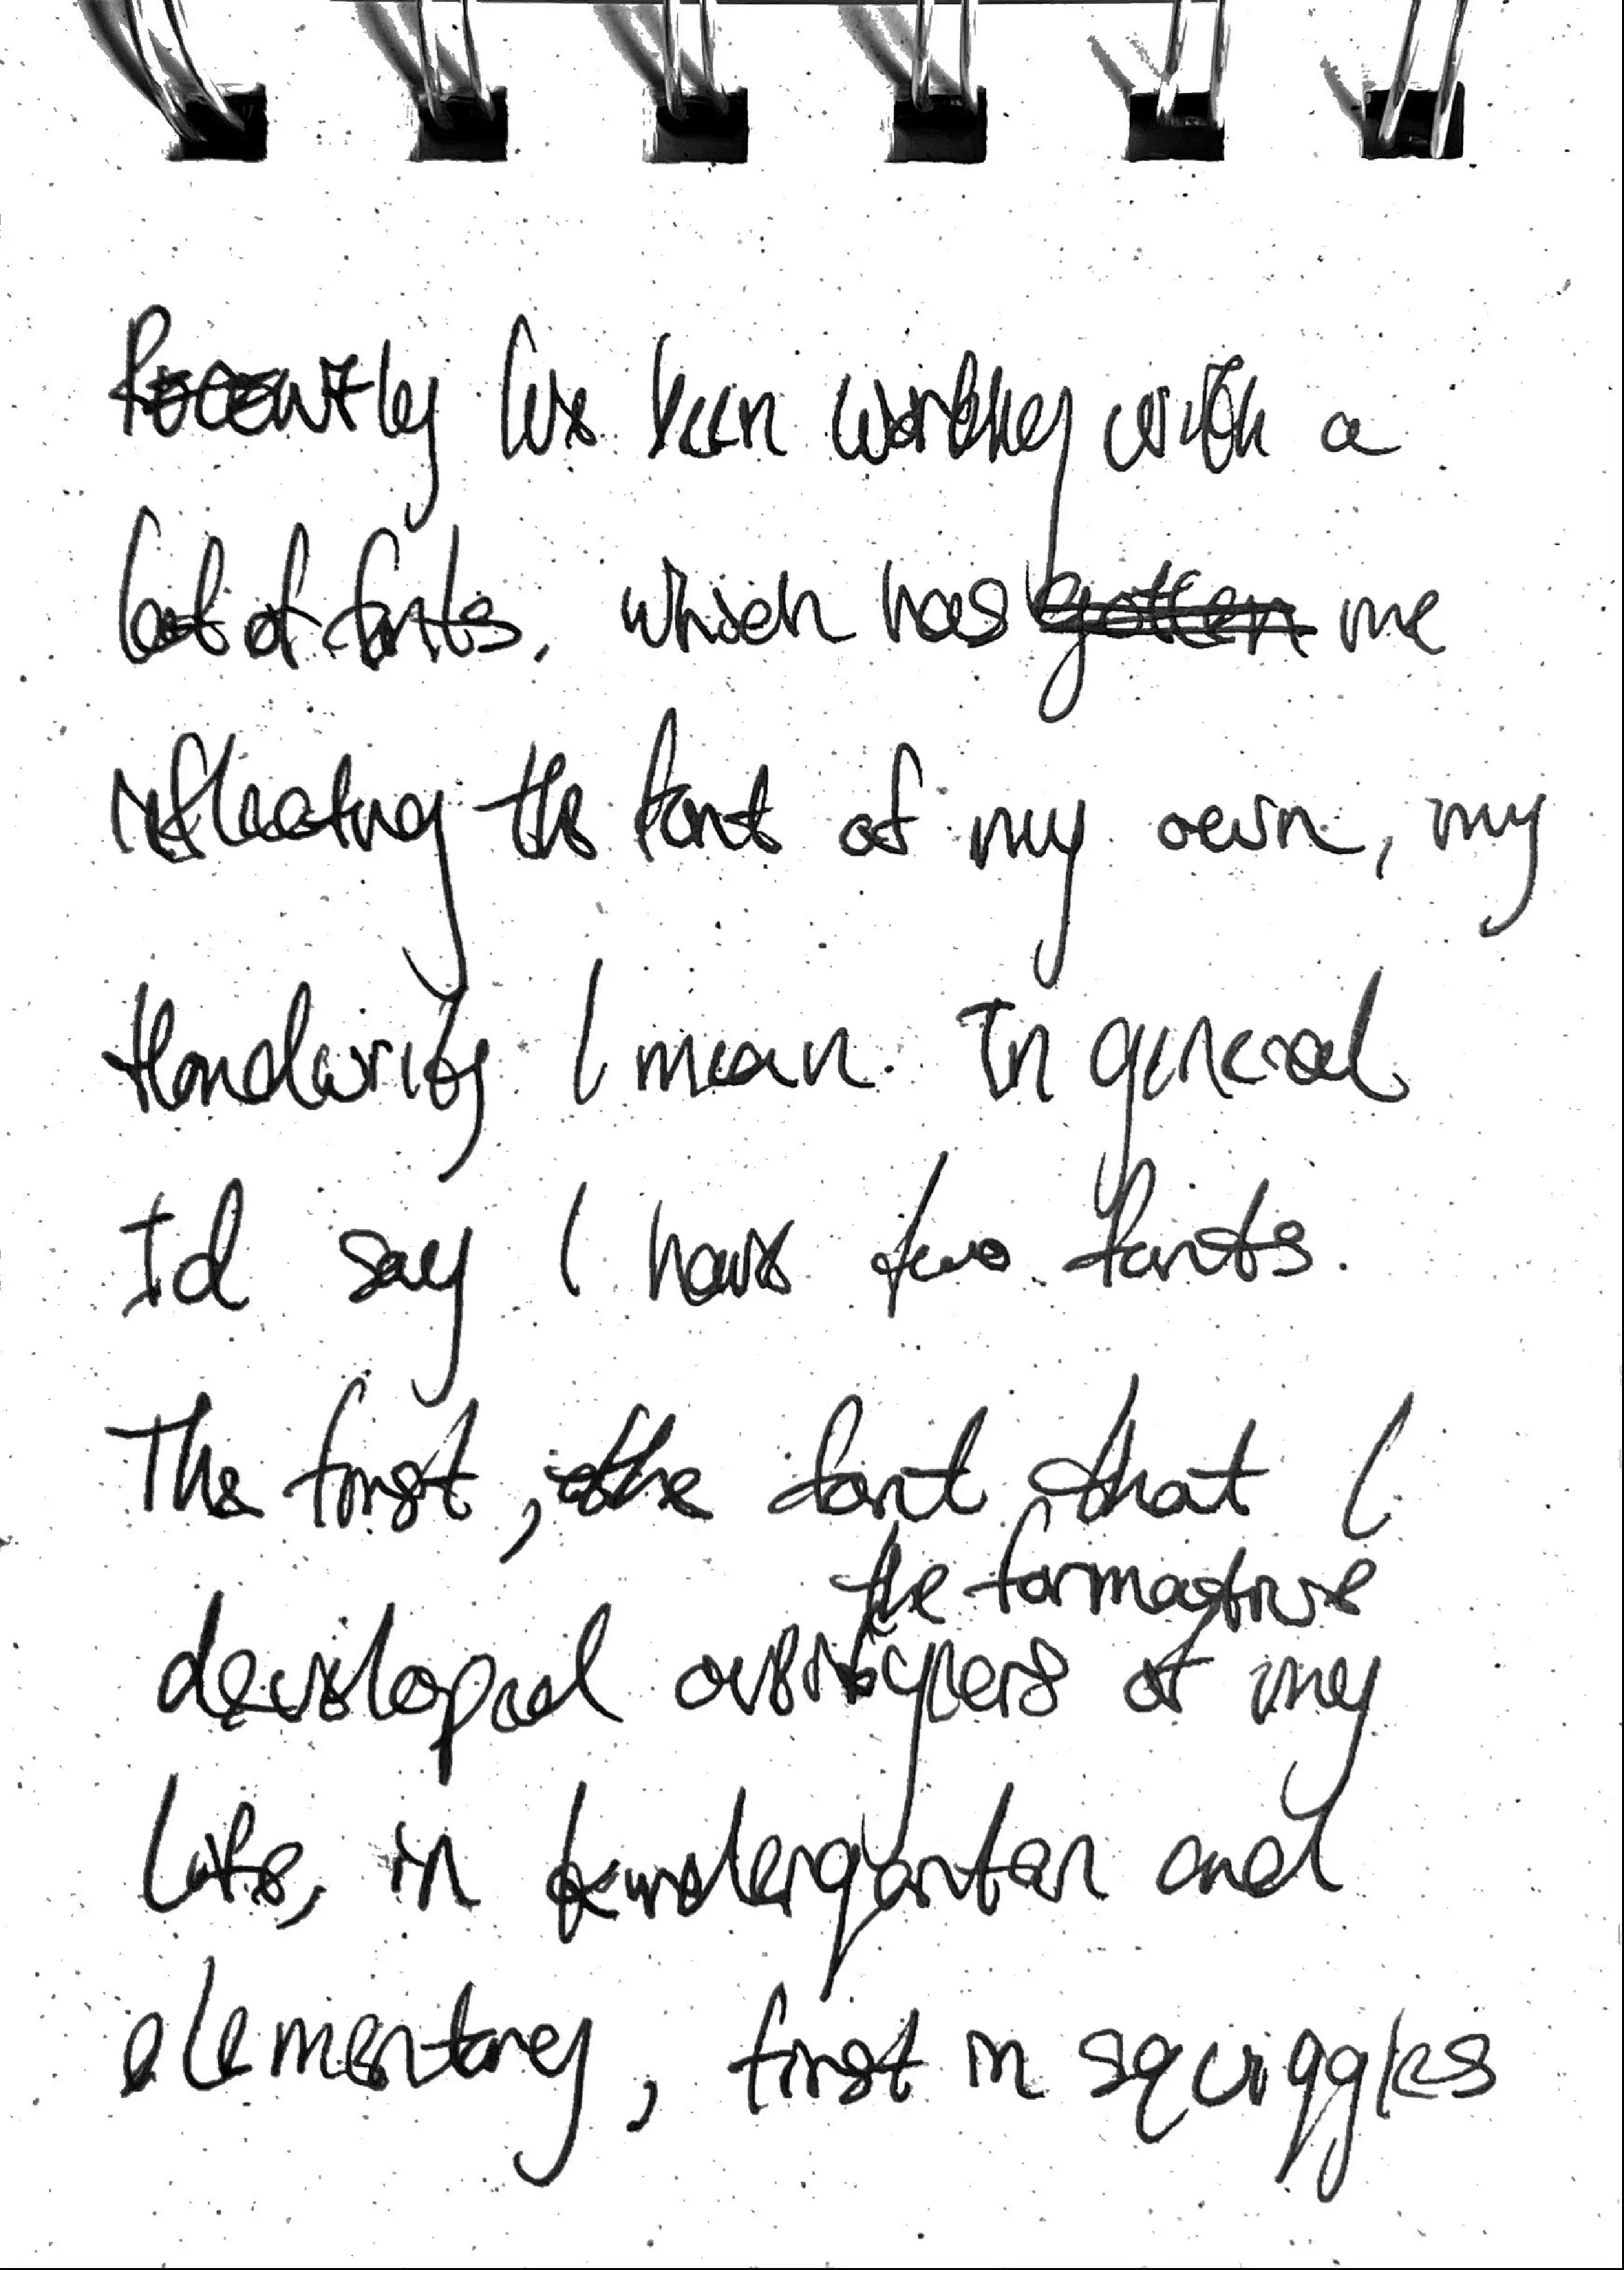 Recently I've been working with a
lot of fonts, which has gotten me
reflecting the font of my own, my
Handwriting I mean. In general
I'd say I have two fonts.
The first, the font that I
the formative
developed over years of my
life, in kindergarten and
elementary, first in squiggles